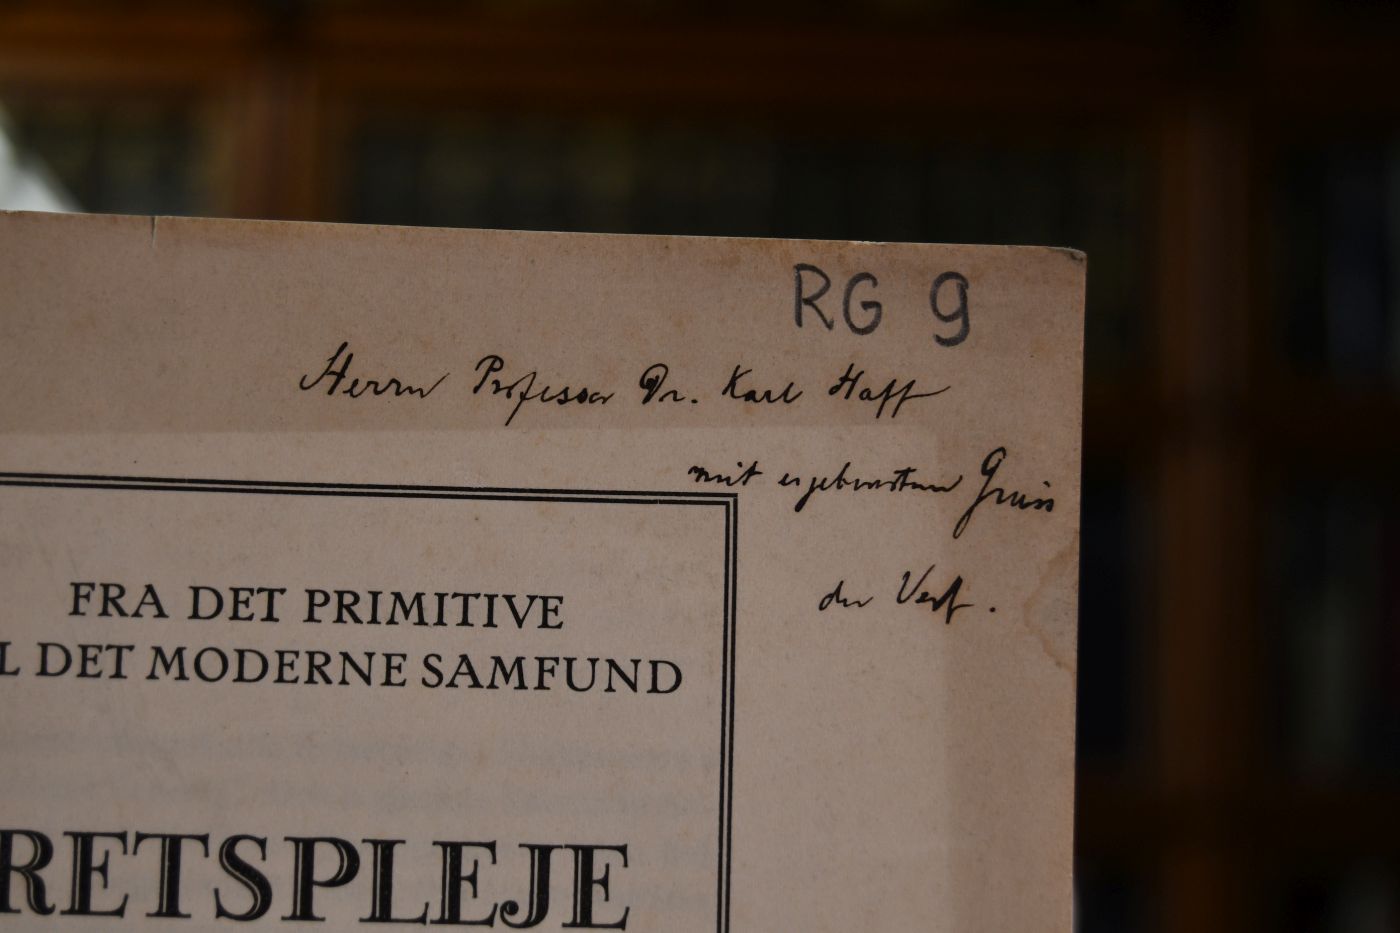 RG 9
Herrn Professor Dr. Karl Haff
mit ergebenstem Gruss
der Verf.
FRA DET PRIMITIVE
L DET MODERNE SAMFUND
RETSPLEJE